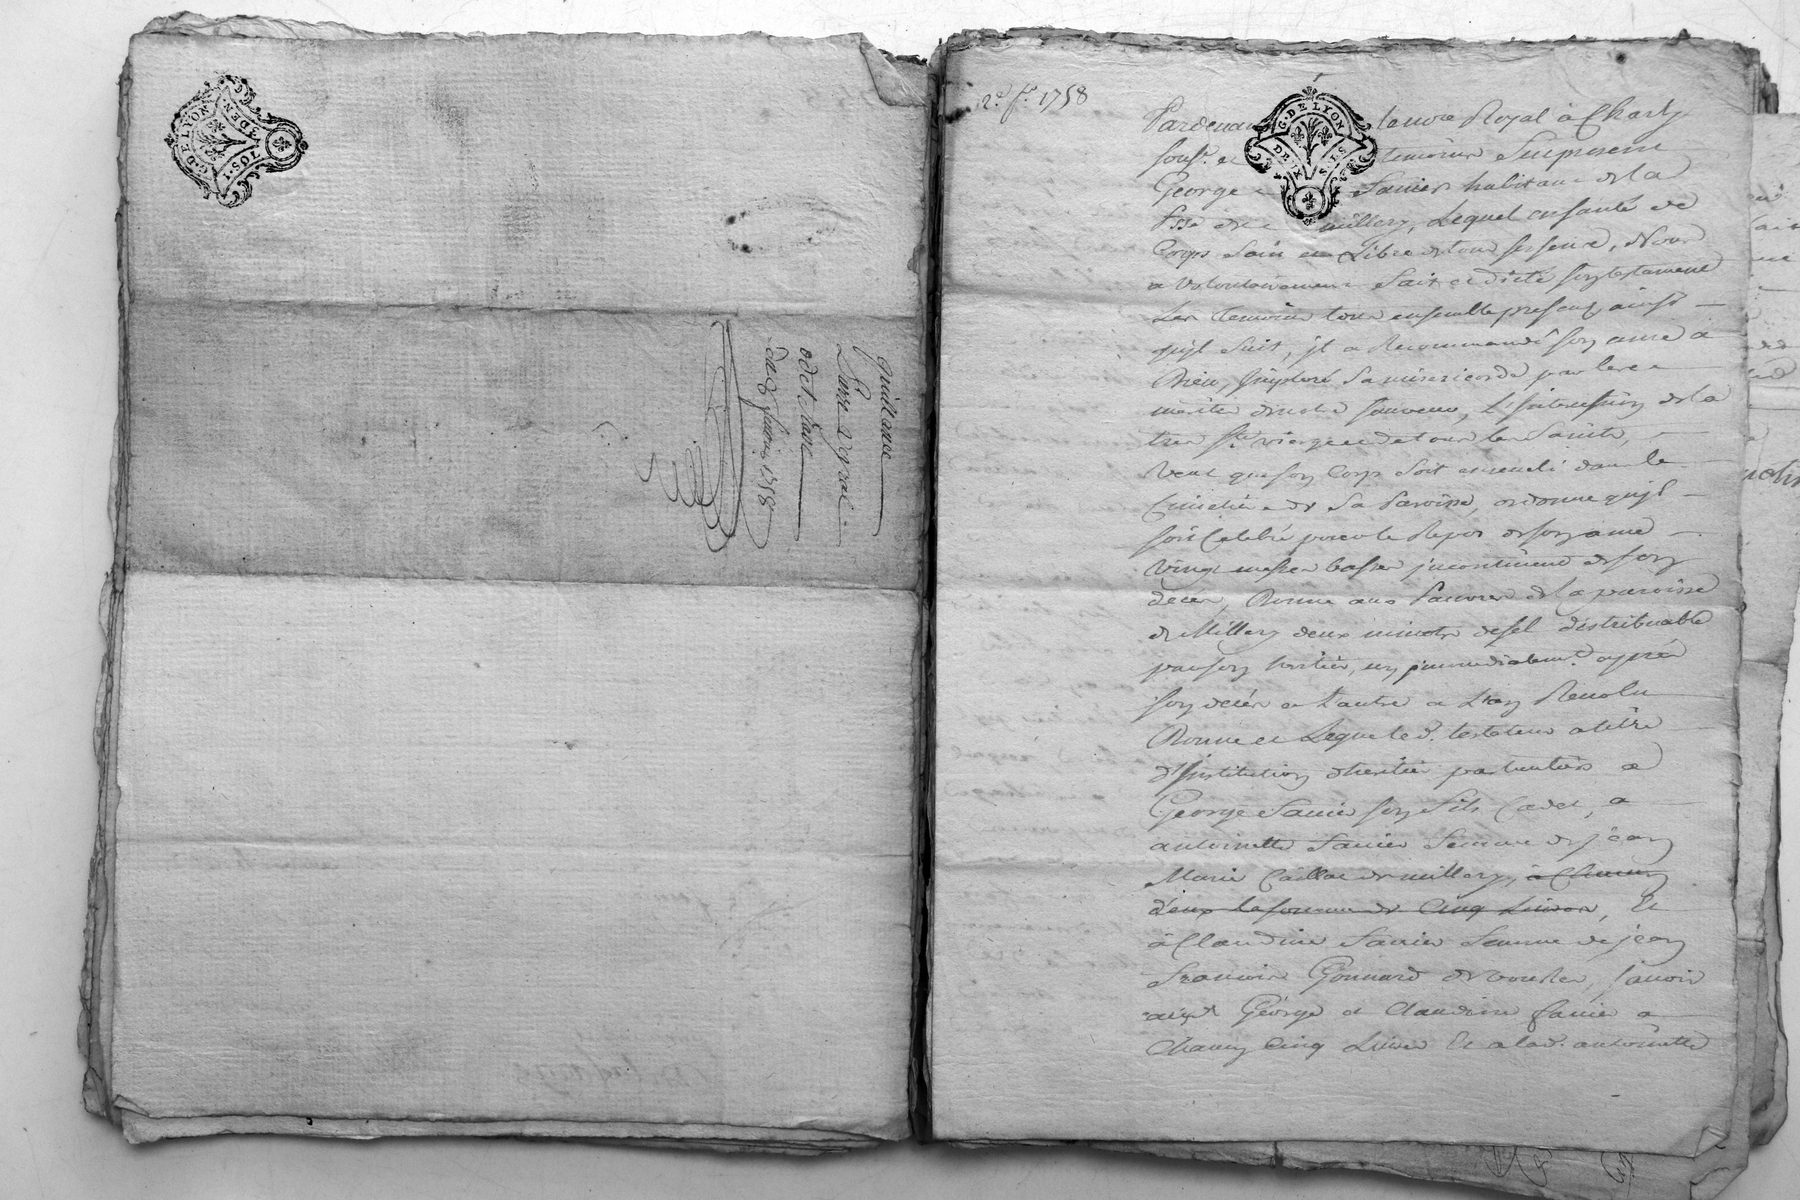 G. DE LYON
DEN
quittance
odet
du 8 fevrier 1758
2e fr 1758
G. DE LYON
DEUX SOLS
Pardevant le nore Royal à Charly
sousé. et temoins Fut present
George Sanier habitant de la
psse de millery, Lequel en santé de
Corps Sain et Libre de tous ses sens, Nous
a volontairement Fait et dicté son testament
Les temoins tous ensemble presents ainsi
qu'jl Suit, jl a Recommandé son ame a
Dieu, Imploré Sa misericorde par les
merites de notre sauveur, L'jntercession de la
tres Ste vierge et de tous les Saints,
Veut que son Corps soit enseveli dans le
Cimetiere de Sa Paroisse, ordonne qu'jl
soit Celebré pour le Repos de son ame
Vingt messes basses jncontinent des son
deces, Donne aux Pauvres de la paroisse
de Millery deux minots de sel distribuable
par son heritier, un jmmediatemt. après
son deces et l'autre a L'an Revolu
Donne et Legue led. testateur a titre
d'Institution d'heritier particuliers a
George Sanier son Fils Cadet, a
antoinette Sanier Femme de jean
Marie Caillot de millery, a Chacun
d'eux La somme de Cinq Livres, Et
a Claudine Sanier Femme de jean
Francois Gonnard de vourles, savoir
auxd. George et Claudine Sanier a
Chacun Cinq Livres Et a lad. antoinette